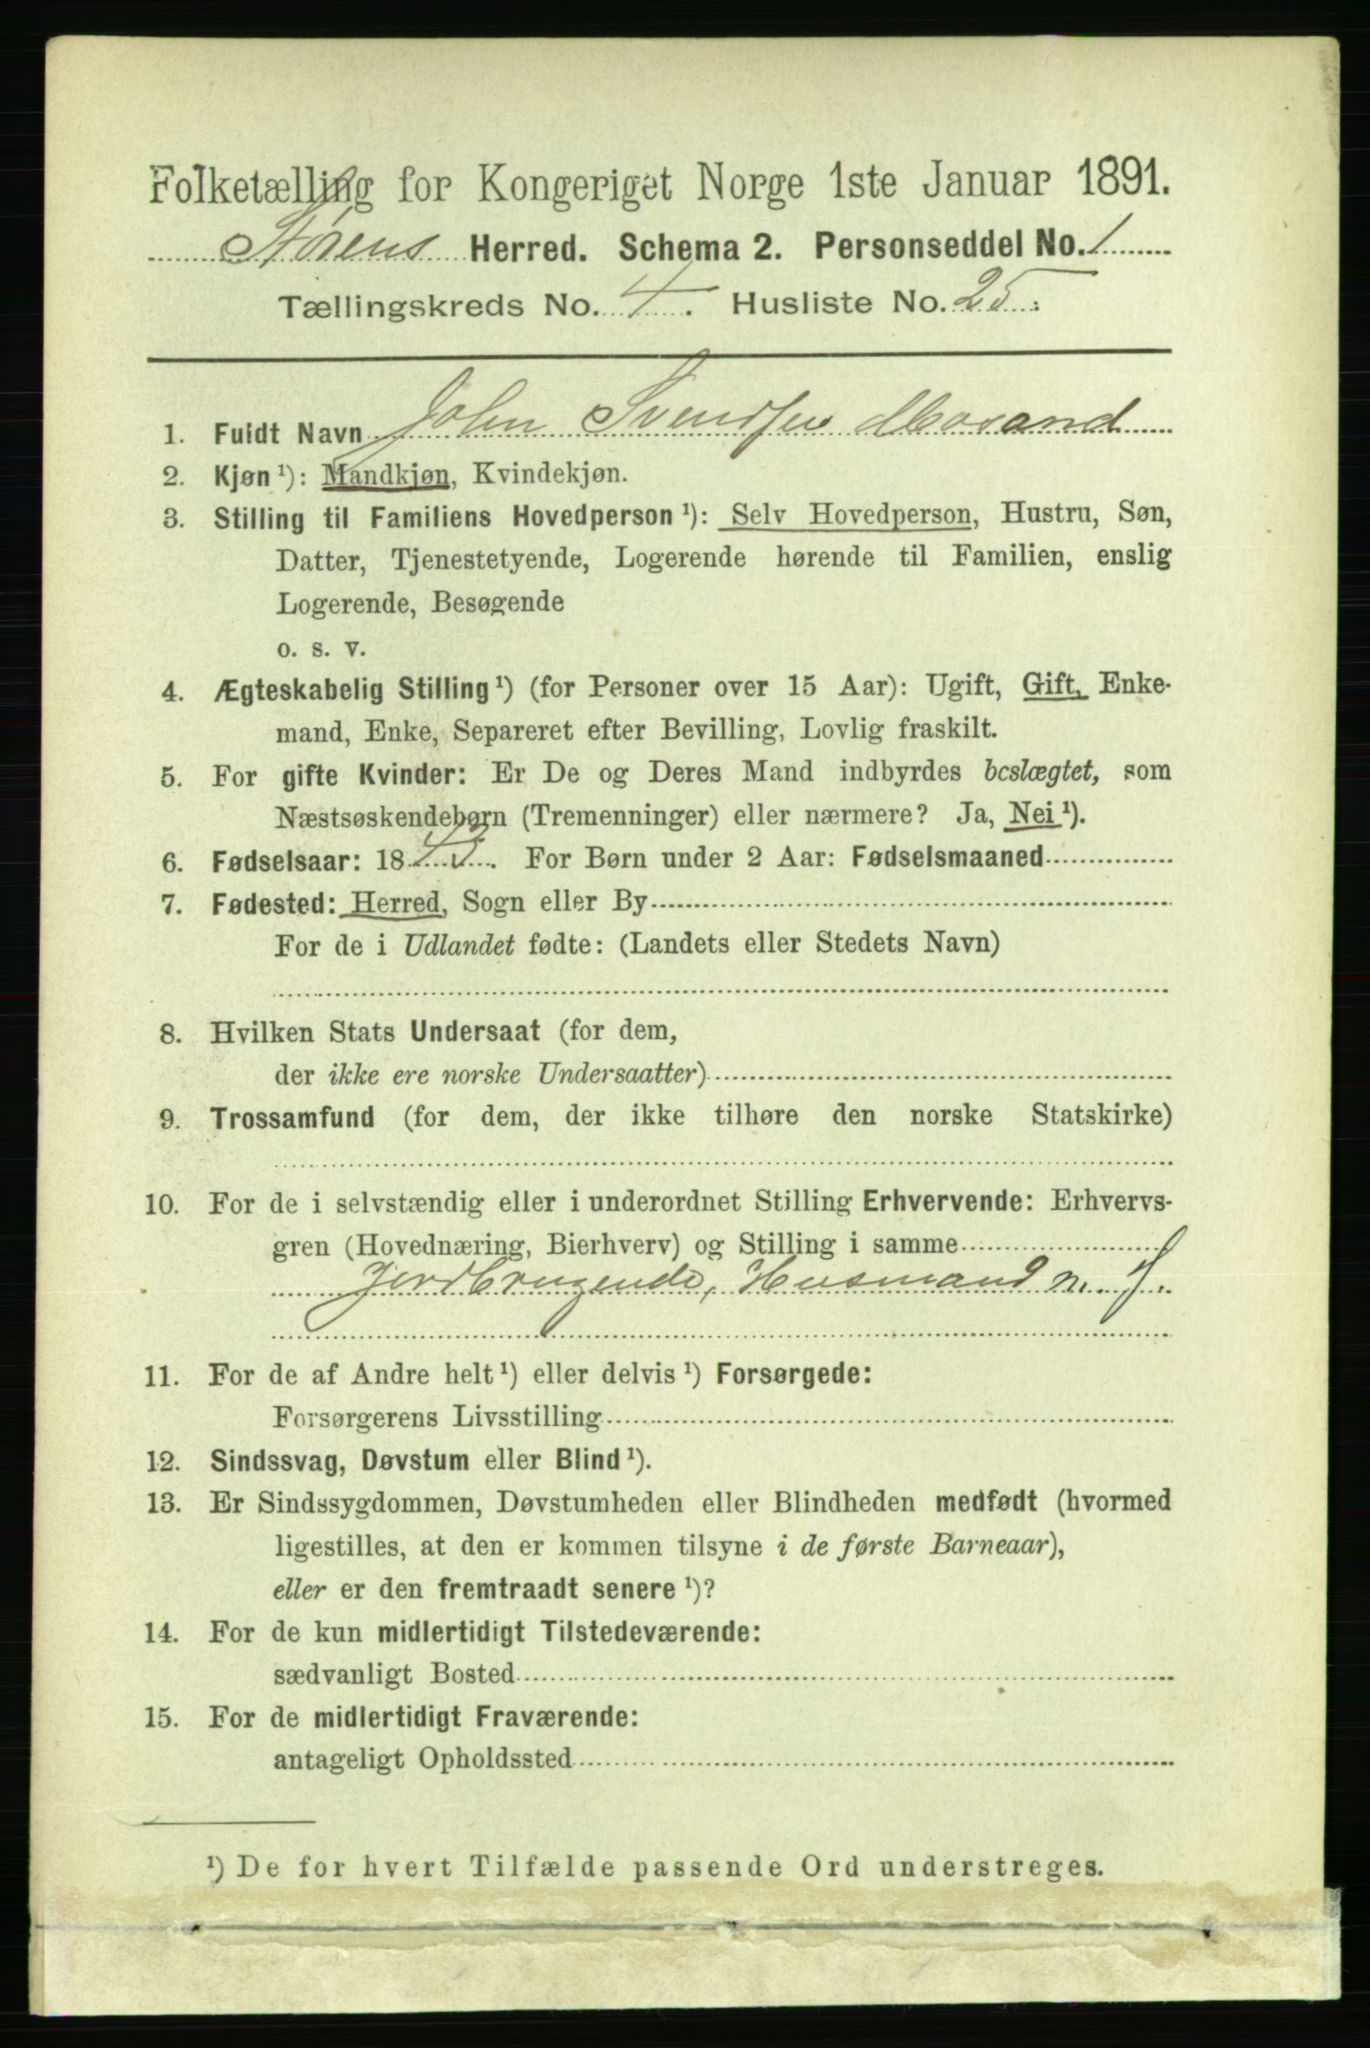 Folketælling for Kongeriget Norge 1ste Januar 1891.
Størens Herred. Schema 2. Personseddel No. 1
Tællingskreds No. 4. Husliste No. 25.
1. Fuldt Navn John Svendsen Mosand
2. Kjøn ¹): Mandkjøn, Kvindekjøn.
3. Stilling til Familiens Hovedperson ¹): Selv Hovedperson, Hustru, Søn,
Datter, Tjenestetyende, Logerende hørende til Familien, enslig
Logerende, Besøgende
o. s. v.
4. Ægteskabelig Stilling ¹) (for Personer over 15 Aar): Ugift, Gift, Enke-
mand, Enke, Separeret efter Bevilling, Lovlig fraskilt.
5. For gifte Kvinder: Er De og Deres Mand indbyrdes beslægtet, som
Næstsøskendebørn (Tremenninger) eller nærmere? Ja, Nei ¹).
6. Fødselsaar: 1843. For Børn under 2 Aar: Fødselsmaaned
7. Fødested: Herred, Sogn eller By
For de i Udlandet fødte: (Landets eller Stedets Navn)
8. Hvilken Stats Undersaat (for dem,
der ikke ere norske Undersaatter)
9. Trossamfund (for dem, der ikke tilhøre den norske Statskirke)
10. For de i selvstændig eller i underordnet Stilling Erhvervende: Erhvervs-
gren (Hovednæring, Bierhverv) og Stilling i samme
Jordbrugende, Husmand m. J.
11. For de af Andre helt ¹) eller delvis ¹) Forsørgede:
Forsørgerens Livsstilling
12. Sindssvag, Døvstum eller Blind ¹).
13. Er Sindssygdommen, Døvstumheden eller Blindheden medfødt (hvormed
ligestilles, at den er kommen tilsyne i de første Barneaar),
eller er den fremtraadt senere ¹)?
14. For de kun midlertidigt Tilstedeværende:
sædvanligt Bosted
15. For de midlertidigt Fraværende:
antageligt Opholdssted
¹) De for hvert Tilfælde passende Ord understreges.